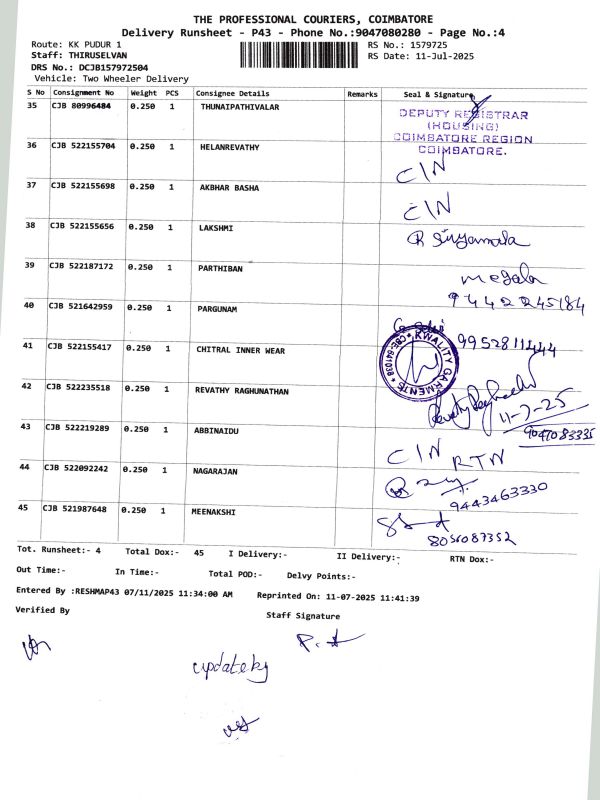 THE PROFESSIONAL COURIERS, COIMBATORE
Delivery Runsheet - P43 - Phone No.:9047080280 - Page No.:4
Route: KK PUDUR 1 RS No.: 1579725
Staff: THIRUSELVAN RS Date: 11-Jul-2025
DRS No.: DCJB157972504
Vehicle: Two Wheeler Delivery
S No Consignment No Weight PCS Consignee Details Remarks Seal & Signature
35 CJB 80996484 0.250 1 THUNAIPATHIVALAR
DEPUTY REGISTRAR
(HOUSING)
COIMBATORE REGION
COIMBATORE.
36 CJB 522155704 0.250 1 HELANREVATHY CIN
37 CJB 522155698 0.250 1 AKBHAR BASHA CIN
38 CJB 522155656 0.250 1 LAKSHMI
39 CJB 522187172 0.250 1 PARTHIBAN megala
9442245184
40 CJB 521642959 0.250 1 PARGUNAM
9952811444
41 CJB 522155417 0.250 1 CHITRAL INNER WEAR KWALITY GARMENTS CBE-641038
42 CJB 522235518 0.250 1 REVATHY RAGHUNATHAN
11-7-25
9047083335
43 CJB 522219289 0.250 1 ABBINAIDU CIN RTN
44 CJB 522092242 0.250 1 NAGARAJAN
9443463330
45 CJB 521987648 0.250 1 MEENAKSHI
8056087352
Tot. Runsheet:- 4 Total Dox:- 45 I Delivery:- II Delivery:- RTN Dox:-
Out Time:- In Time:- Total POD:- Delvy Points:-
Entered By :RESHMAP43 07/11/2025 11:34:00 AM Reprinted On: 11-07-2025 11:41:39
Verified By Staff Signature